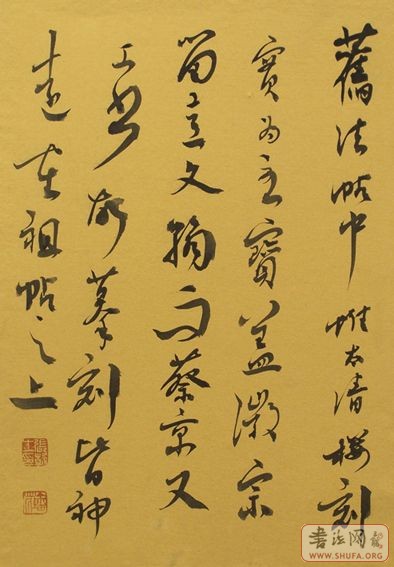 舊法帖中惟太清樓刻
實为至寶盖徽宗
留意文翰而蔡京又
工書故摹刻皆神
遠在祖帖之上
書法网报
WWW.SHUFA.ORG